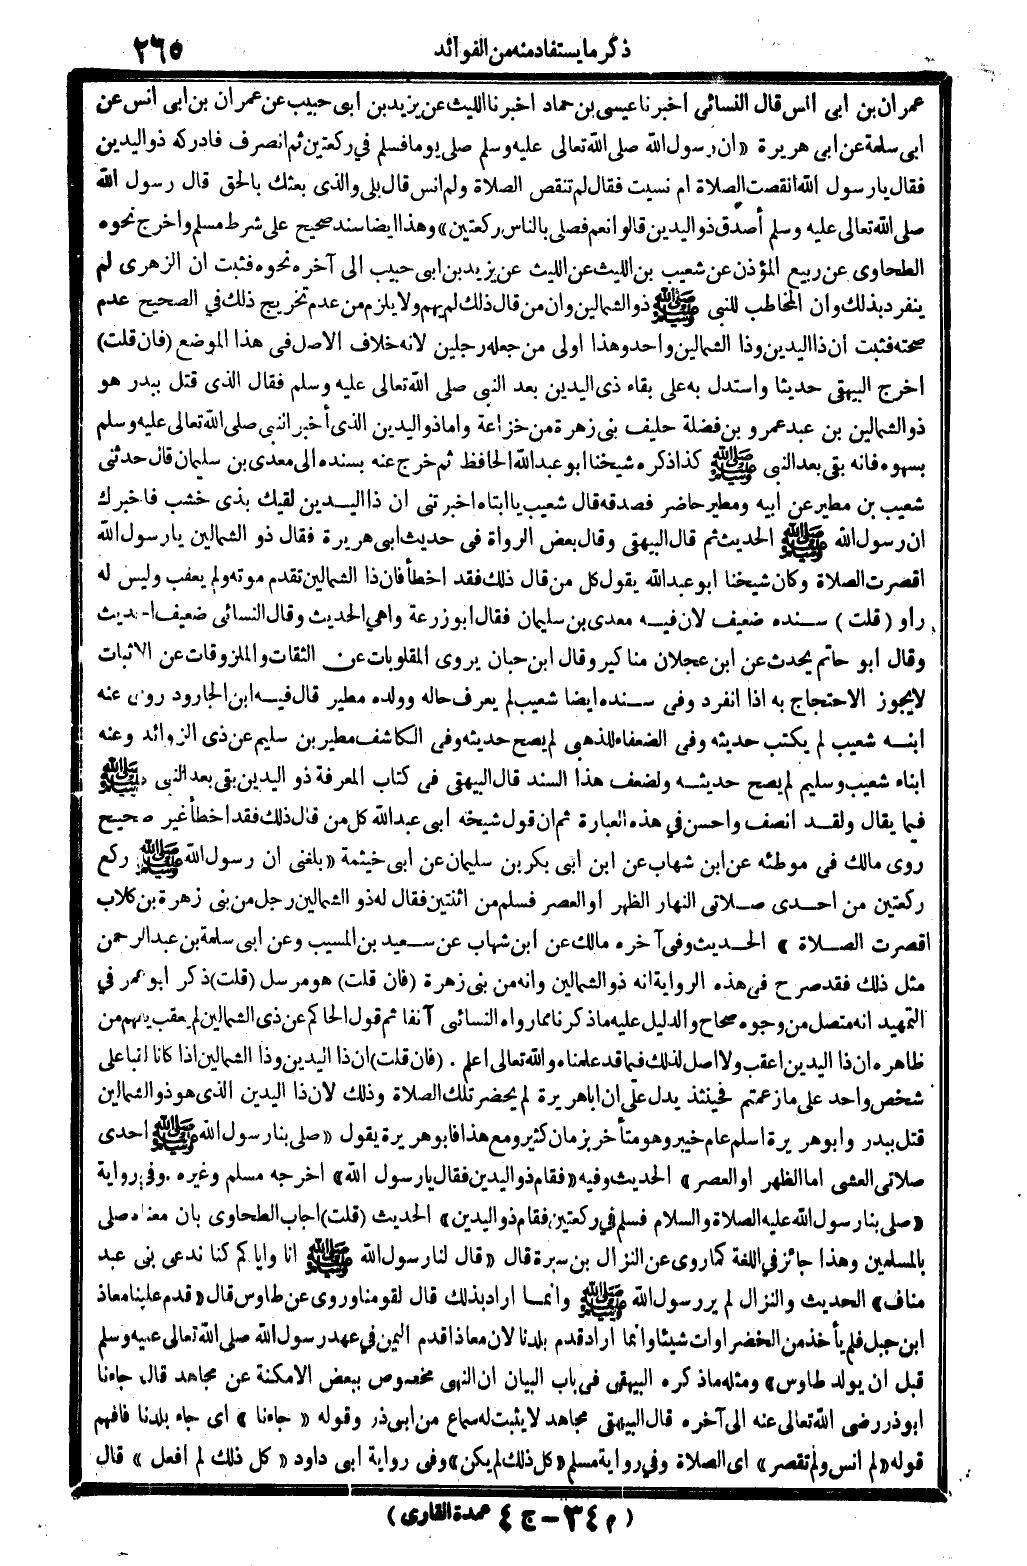 ذكر ما يستفاد منه من الفوائد ٢٦٥
عمران بن ابى انس قال النسائى اخبرنا عيسى بن حماد اخبرنا الليث عن يزيد بن ابى حبيب عن عمران بن ابى انس عن
ابى سلمة عن ابى هريرة «ان رسول الله صلى الله تعالى عليه وسلم صلى يوما فسلم في ركعتين ثم انصرف فادركه ذو اليدين
فقال يا رسول الله انقصت الصلاة ام نسيت فقال لم تنقص الصلاة ولم انس قال بلى والذى بعثك بالحق قال رسول الله
صلى الله تعالى عليه وسلم أصدق ذو اليدين قالوا نعم فصلى بالناس ركعتين» وهذا ايضا سند صحيح على شرط مسلم واخرج نحوه
الطحاوى عن ربيع المؤذن عن شعيب بن الليث عن الليث عن يزيد بن ابى حبيب الى آخره نحوه فثبت ان الزهرى لم
ينفرد بذلك وان المخاطب للنبى ﷺ ذو الشمالين وان من قال ذلك لم يهم ولا يلزم من عدم تخريج ذلك في الصحيح عدم
صحته فثبت ان ذا اليدين وذا الشمالين واحد وهذا اولى من جعله رجلين لانه خلاف الاصل فى هذا الموضع (فان قلت)
اخرج البيهقى حديثا واستدل به على بقاء ذى اليدين بعد النبى صلى الله تعالى عليه وسلم فقال الذى قتل ببدر هو
ذو الشمالين بن عبد عمرو بن فضلة حليف بنى زهرة من خزاعة واما ذو اليدين الذى أخبر النبى صلى الله تعالى عليه وسلم
بسهوه فانه بقى بعد النبى ﷺ كذا ذكره شيخنا ابو عبد الله الحافظ ثم خرج عنه بسنده الى معدى بن سليمان قال حدثنى
شعيب بن مطير عن ابيه ومطير حاضر فصدقه قال شعيب يا ابتاه اخبرتنى ان ذا اليدين لقيك بذى خشب فاخبرك
ان رسول الله ﷺ الحديث ثم قال البيهقى وقال بعض الرواة فى حديث ابى هريرة فقال ذو الشمالين يا رسول الله
اقصرت الصلاة وكان شيخنا ابو عبد الله يقول كل من قال ذلك فقد اخطأ فان ذا الشمالين تقدم موته ولم يعقب وليس له
راو (قلت) سنده ضعيف لان فيه معدى بن سليمان فقال ابو زرعة واهي الحديث وقال النسائى ضعيف الحديث
وقال ابو حاتم يحدث عن ابن عجلان مناكير وقال ابن حبان يروى المقلوبات عن الثقات والملزوقات عن الاثبات
لا يجوز الاحتجاج به اذا انفرد وفى سنده ايضا شعيب لم يعرف حاله وولده مطير قال فيه ابن الجارود روى عنه
ابنه شعيب لم يكتب حديثه وفى الضعفاء للذهبى لم يصح حديثه وفى الكاشف مطير بن سليم عن ذى الزوائد وعنه
ابناه شعيب وسليم لم يصح حديثه ولضعف هذا السند قال البيهقى فى كتاب المعرفة ذو اليدين بقى بعد النبى ﷺ
فيما يقال ولقد انصف واحسن في هذه العبارة ثم ان قول شيخه ابى عبد الله كل من قال ذلك فقد اخطأ غير صحيح
روى مالك فى موطئه عن ابن شهاب عن ابن ابى بكر بن سليمان عن ابى خيثمة «بلغنى ان رسول الله ﷺ ركع
ركعتين من احدى صلاتى النهار الظهر او العصر فسلم من اثنتين فقال له ذو الشمالين رجل من بنى زهرة بن كلاب
اقصرت الصلاة» الحديث وفى آخره مالك عن ابن شهاب عن سعيد بن المسيب وعن ابى سلمة بن عبد الرحمن
مثل ذلك فقد صرح فى هذه الرواية انه ذو الشمالين وانه من بنى زهرة (فان قلت) هو مرسل (قلت) ذكر ابو عمر في
التمهيد انه متصل من وجوه صحاح والدليل عليه ما ذكرنا مما رواه النسائى آنفا ثم قول الحاكم عن ذى الشمالين لم يعقب يفهم من
ظاهره ان ذا اليدين اعقب ولا اصل لذلك فيما قد علمناه والله تعالى اعلم . (فان قلت) ان ذا اليدين وذا الشمالين اذا كانا لقبا على
شخص واحد على ما زعمتم فحينئذ يدل على ان ابا هريرة لم يحضر تلك الصلاة وذلك لان ذا اليدين الذى هو ذو الشمالين
قتل ببدر وابو هريرة اسلم عام خيبر وهو متأخر بزمان كثير ومع هذا فابو هريرة يقول «صلى بنا رسول الله ﷺ احدى
صلاتى العشى اما الظهر او العصر» الحديث وفيه «فقام ذو اليدين فقال يا رسول الله» اخرجه مسلم وغيره . وفى رواية
«صلى بنا رسول الله عليه الصلاة والسلام فسلم في ركعتين فقام ذو اليدين» الحديث (قلت) اجاب الطحاوى بان معناه صلى
بالمسلمين وهذا جائز في اللغة كما روى عن النزال بن سبرة قال «قال لنا رسول الله ﷺ انا واياكم كنا ندعى بنى عبد
مناف» الحديث والنزال لم ير رسول الله ﷺ وانما اراد بذلك قال لقومنا وروى عن طاوس قال «قدم علينا معاذ
ابن جبل فلم يأخذ من الخضراوات شيئا وانما اراد قدم بلدنا لان معاذا قدم اليمن في عهد رسول الله صلى الله تعالى عليه وسلم
قبل ان يولد طاوس» ومثله ما ذكره البيهقى فى باب البيان ان النهى مخصوص ببعض الامكنة عن مجاهد قال جاءنا
ابو ذر رضى الله تعالى عنه الى آخره قال البيهقى مجاهد لا يثبت له سماع من ابى ذر وقوله «جاءنا» اى جاء بلدنا فافهم
قوله «لم انس ولم تقصر» اى الصلاة وفي رواية مسلم «كل ذلك لم يكن» وفى رواية ابى داود «كل ذلك لم افعل» قال
(م ٣٤ - ج ٤ عمدة القارى)